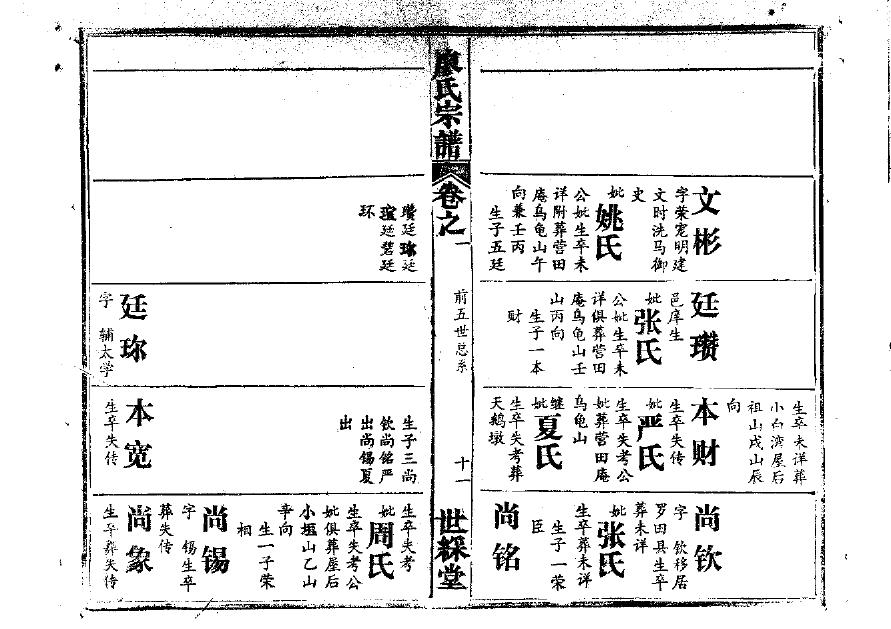 文彬
字荣宠明建
文时洗马御
史
妣
姚氏
公妣生卒未
详附葬营田
庵乌龟山午
向兼壬丙
生子五廷
瓒廷珎廷
瑄廷碧廷
环
廷瓒
邑庠生
妣
张氏
公妣生卒未
详俱葬营田
庵乌龟山壬
山丙向
生子一本
财
廷珎
字 辅太学
生卒未详葬
小白湾屋后
祖山戍山辰
向
本财
生卒失传
妣
严氏
生卒失考公
妣葬营田庵
乌龟山
继
妣
夏氏
生卒失考葬
天鹅墩
生子三尚
钦尚铭严
出尚锡夏
出
本宽
生卒失传
尚钦
字 钦移居
罗田县生卒
葬未详
妣
张氏
生卒葬未详
生子一荣
臣
尚铭
生卒失考
妣
周氏
生卒失考公
妣俱葬屋后
小垣山乙山
辛向
生一子荣
相
尚锡
字 锡生卒
葬失传
尚象
生卒葬失传
廖氏宗譜
卷之一
前五世总系
十一
世綵堂